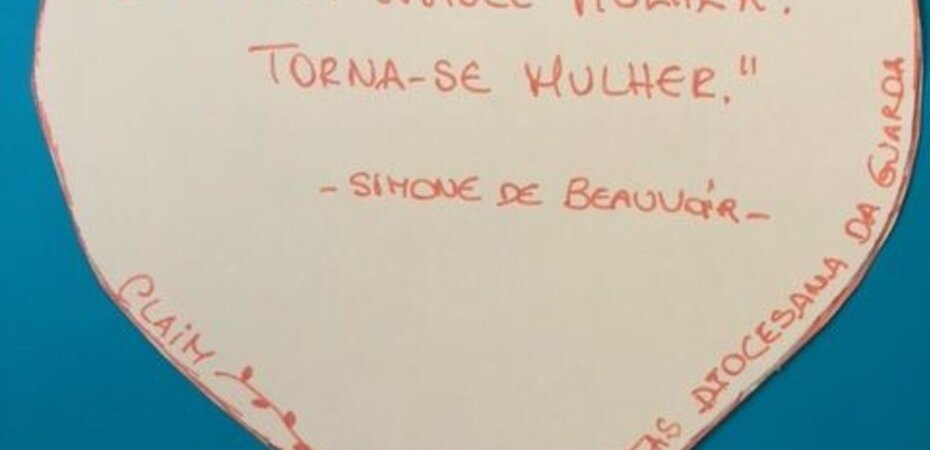 MULHER.
TORNA-SE MULHER."
- SIMONE DE BEAUVOIR -
CLAIM
DIOCESANA DA GUARDA